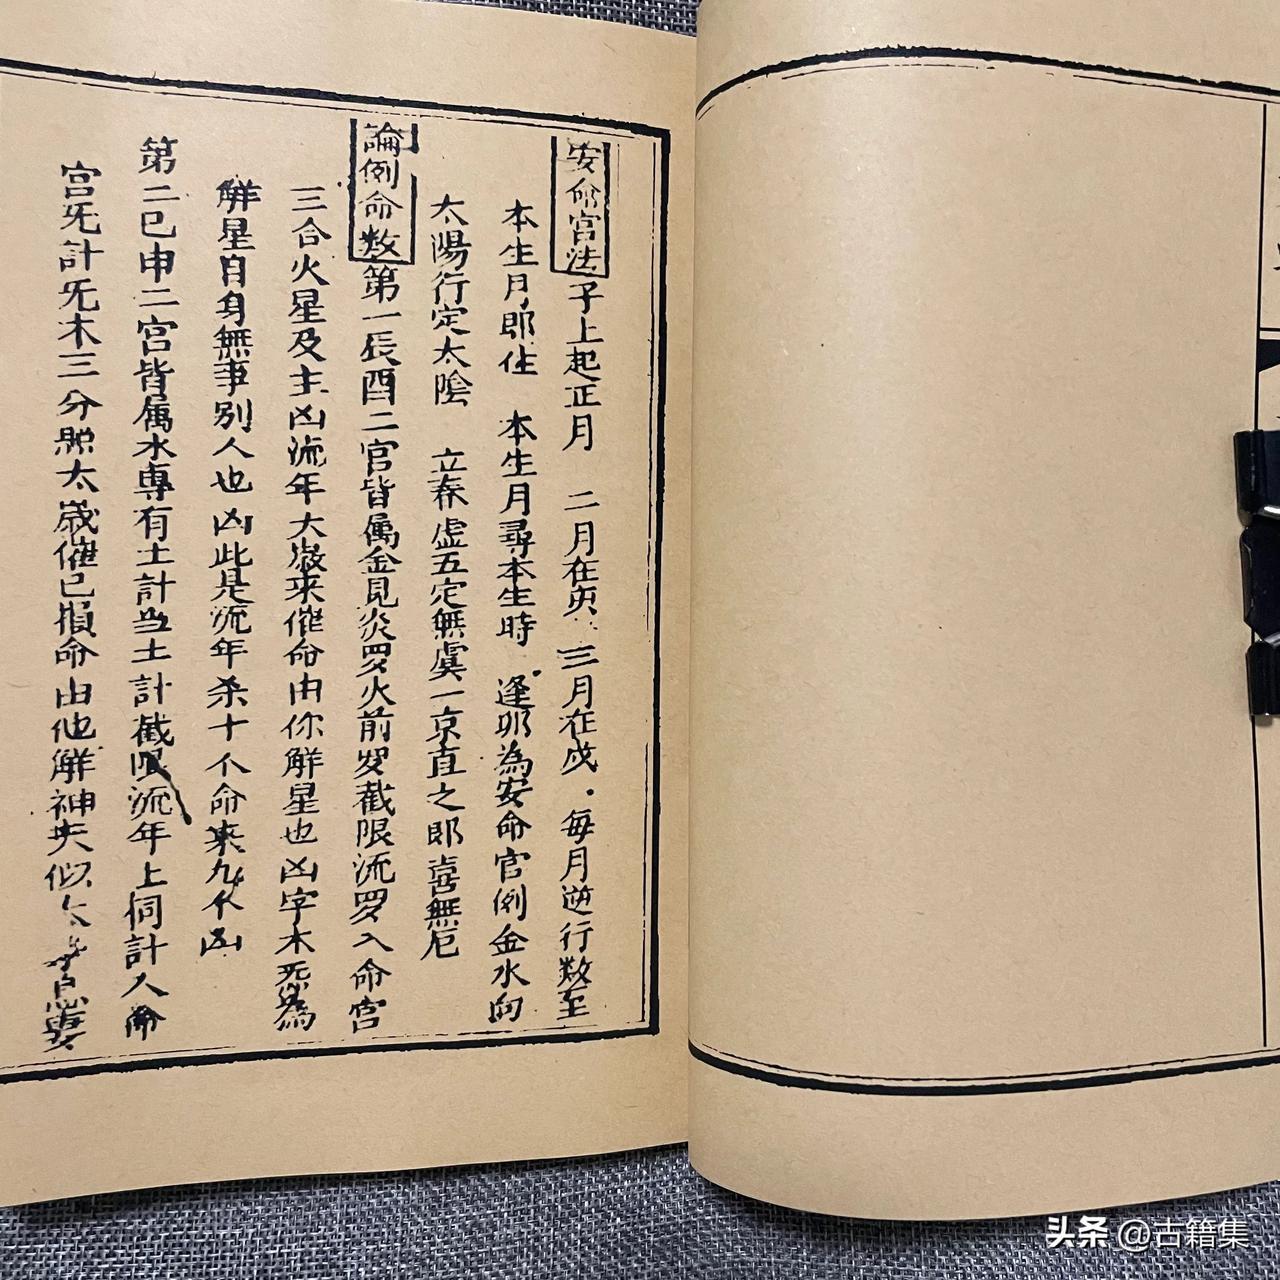 安命宫法子上起正月 二月在寅 三月在戌 每月逆行数至
本生月即住 本生月尋本生時 逢卯為安命官例金水向
太陽行定太陰 立春虚五定無虞一京直之郎喜無厄
論例命数第一辰酉二官皆属金見炎罗火前罗截限流罗入命宫
三合火星及主凶流年大歳来催命由你解星也凶字木炁為
解星自身無事别人也凶此是流年杀十个命来九个凶
第二巳申二宫皆属水專有土計当土計截限流年上同計入命
宫旡計旡木三分照太歳催已損命由他解神失似
头条@古籍集